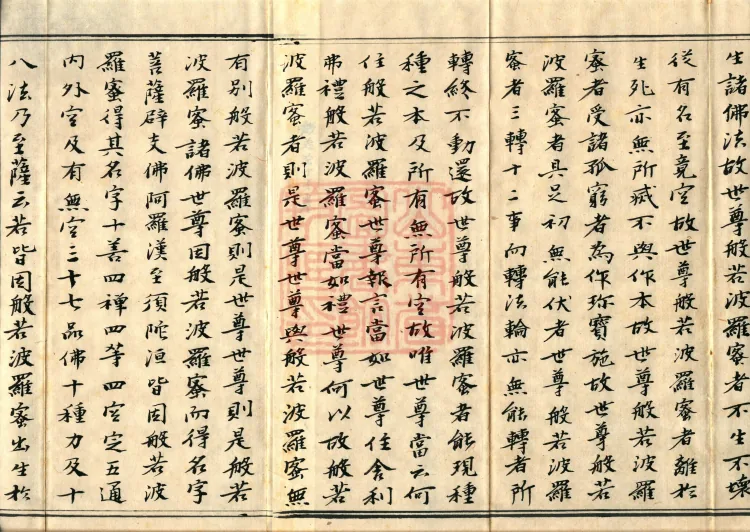 生諸佛法故世尊般若波羅蜜者不生不壞
從有名至竟空故世尊般若波羅蜜者離於
生死亦無所滅不與作本故世尊般若波羅
蜜者受諸孤窮者為作珎寶施故世尊般若
波羅蜜者具足初無能伏者世尊般若波羅
蜜者三轉十二事而轉法輪亦無能轉者所
轉終不動還故世尊般若波羅蜜者能現種
種之本及所有無所有空故唯世尊當云何
住般若波羅蜜世尊報言當如世尊住舍利
弗禮般若波羅蜜當如禮世尊何以故般若
波羅蜜者則是世尊世尊與般若波羅蜜無
有別般若波羅蜜則是世尊世尊則是般若
波羅蜜諸佛世尊因般若波羅蜜而得名字
菩薩辟支佛阿羅漢至須陀洹皆因般若波
羅蜜得其名字十善四禪四等四空定五通
內外空及有無空三十七品佛十種力及十
八法乃至薩云若皆因般若波羅蜜出生於